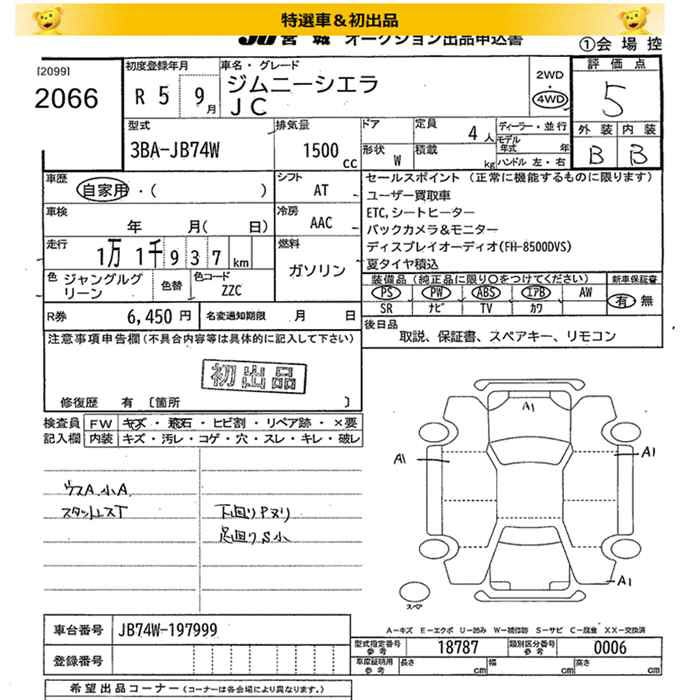 特選車＆初出品
JU宮城 オークション出品申込書
①会場控
[2099]
2066
初度登録年月
R 5 9月
車名・グレード
ジムニーシエラ
JC
2WD
・
4WD
評価点
5
外装 内装
B B
型式
3BA-JB74W
排気量
1500 cc
ドア
形状 W
定員 4人
積載 kg
ディーラー・並行
モデル年式 年
ハンドル 左・右
車歴
自家用・( )
シフト
AT
車検
年 月( 日)
冷房
AAC
走行
1万 1千 9 3 7 km
燃料
ガソリン
色 ジャングルグリーン
色替
色コード
ZZC
R券 6,450 円
名変通知期限 月 日
セールスポイント (正常に機能するものに限ります)
ユーザー買取車
ETC,シートヒーター
バックカメラ&モニター
ディスプレイオーディオ(FH-8500DVS)
夏タイヤ積込
装備品 (純正品に限り○をつけてください)
新車保証書
PS PW ABS エアB AW
SR ナビ TV カワ
有 無
後日品
取説、保証書、スペアキー、リモコン
注意事項申告欄 (不具合内容等は具体的に記入して下さい)
初出品
修復歴 有 〔箇所 〕
検査員記入欄
FW キズ・飛石・ヒビ割・リペア跡・×要
内装 キズ・汚レ・コゲ・穴・スレ・キレ・破レ
ウスA 小A
下回りPヌリ
足回りS小
A1
A1
A1
A1
スペア
A-キズ E-エクボ U-凹み W-補修跡 S-サビ C-腐食 XX-交換済
車台番号 JB74W-197999
登録番号
型式指定番号 参考 18787
類別区分番号 参考 0006
車庫証明用 参考
長さ cm 幅 cm 高さ cm
希望出品コーナー (コーナーは各会場により異なります。)